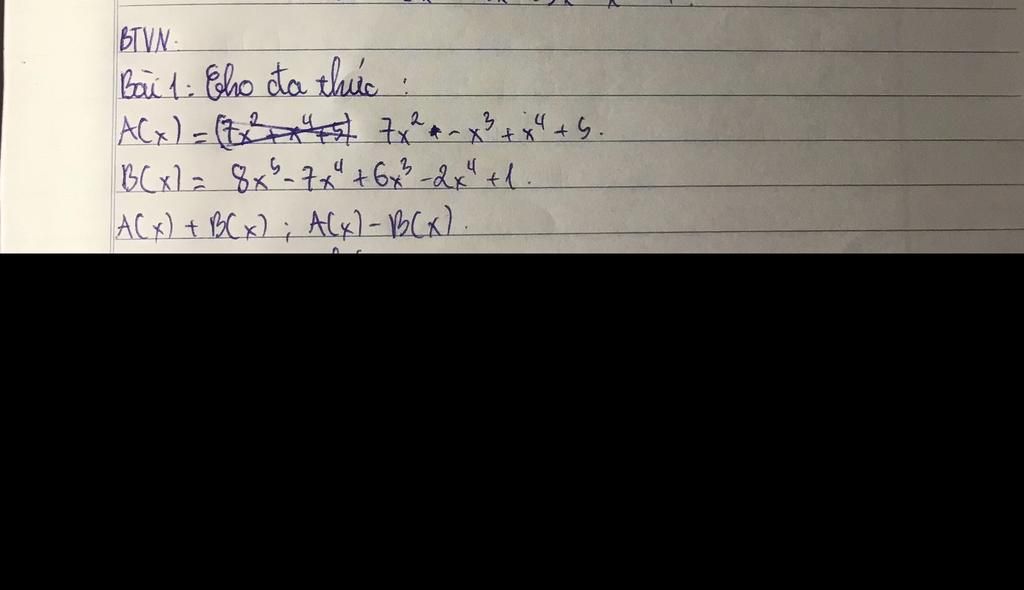 BTVN.
Bài 1: Cho đa thức :
A(x) = 7x² - x³ + x⁴ + 5.
B(x) = 8x⁵ - 7x⁴ + 6x³ - 2x⁴ + 1.
A(x) + B(x) ; A(x) - B(x).